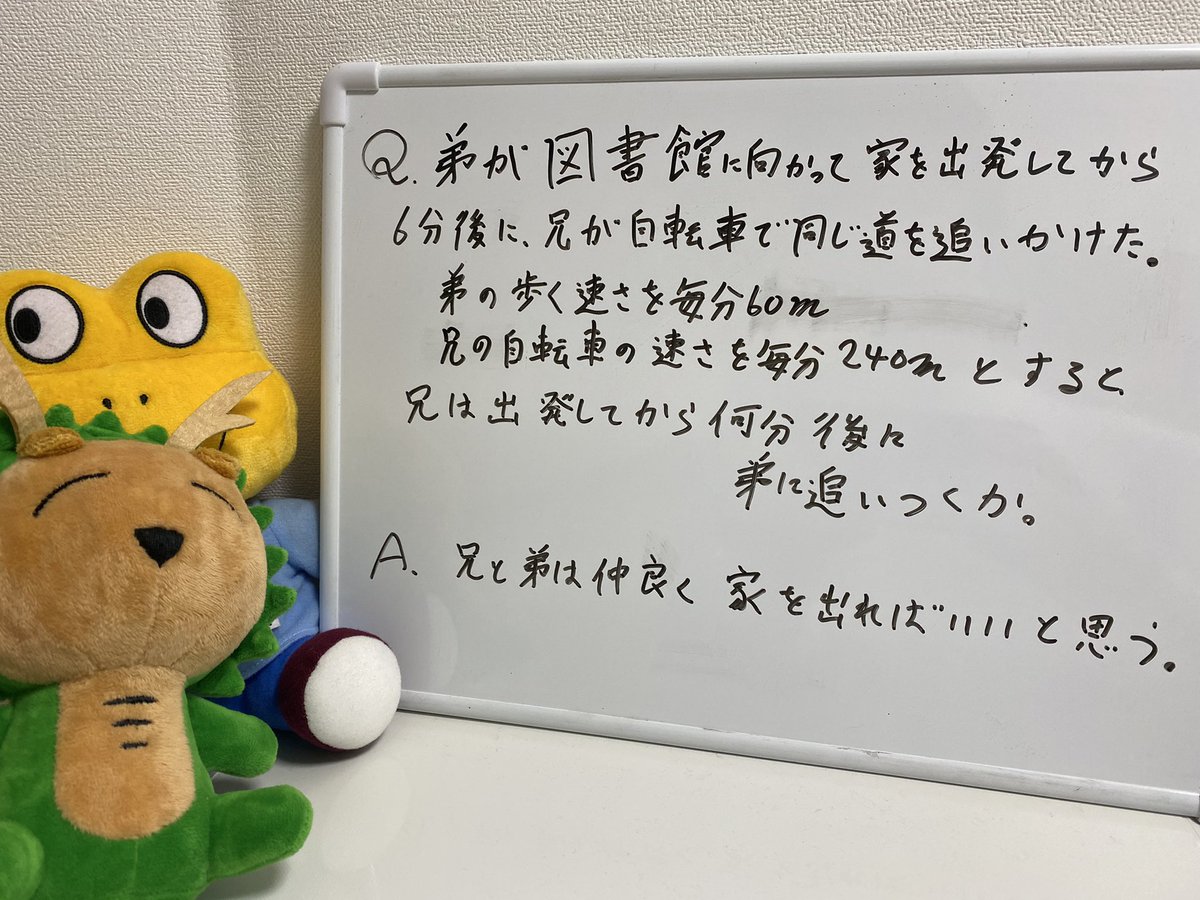 Q. 弟が図書館に向かって家を出発してから
6分後に、兄が自転車で同じ道を追いかけた。
弟の歩く速さを毎分60m
兄の自転車の速さを毎分240mとすると、
兄は出発してから何分後に
弟に追いつくか。
A. 兄と弟は仲良く家を出ればいいと思う。